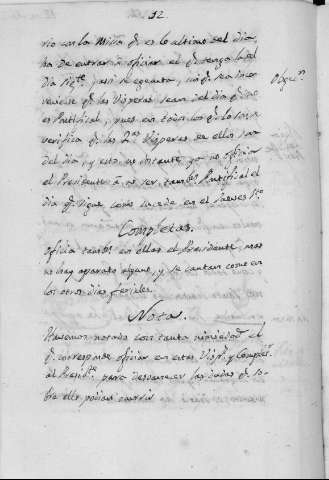 12
rio con la Misa q.e es lo ultimo del dia,
ha de entrar á oficiar el q.e tenga la del
dia sig.te, y asi se executa, sin q.e sea incon
veniente q.e las Visperas sean del dia q.e
es Pontifical, pues en todos los q.e lo son se
verifica q.e las 2.as Visperas de ellos son
del dia, y esto no obstante ya no oficia
el Presidente á no ser tambn Pontifical el
dia q.e sigue como sucede en el Jueves S.to
Completas.
Oficia tambn en ellas el Presidente, mas
no hay aparato alguno, y se cantan como en
los otros dias feriales.
Nota.
Hacemos notado con tanta el
q.e corresponde oficiar en estas Visp.s y Complet.s
al Presid.te para desvanecer las dudas q.e so-
bre ello podian ocurrir